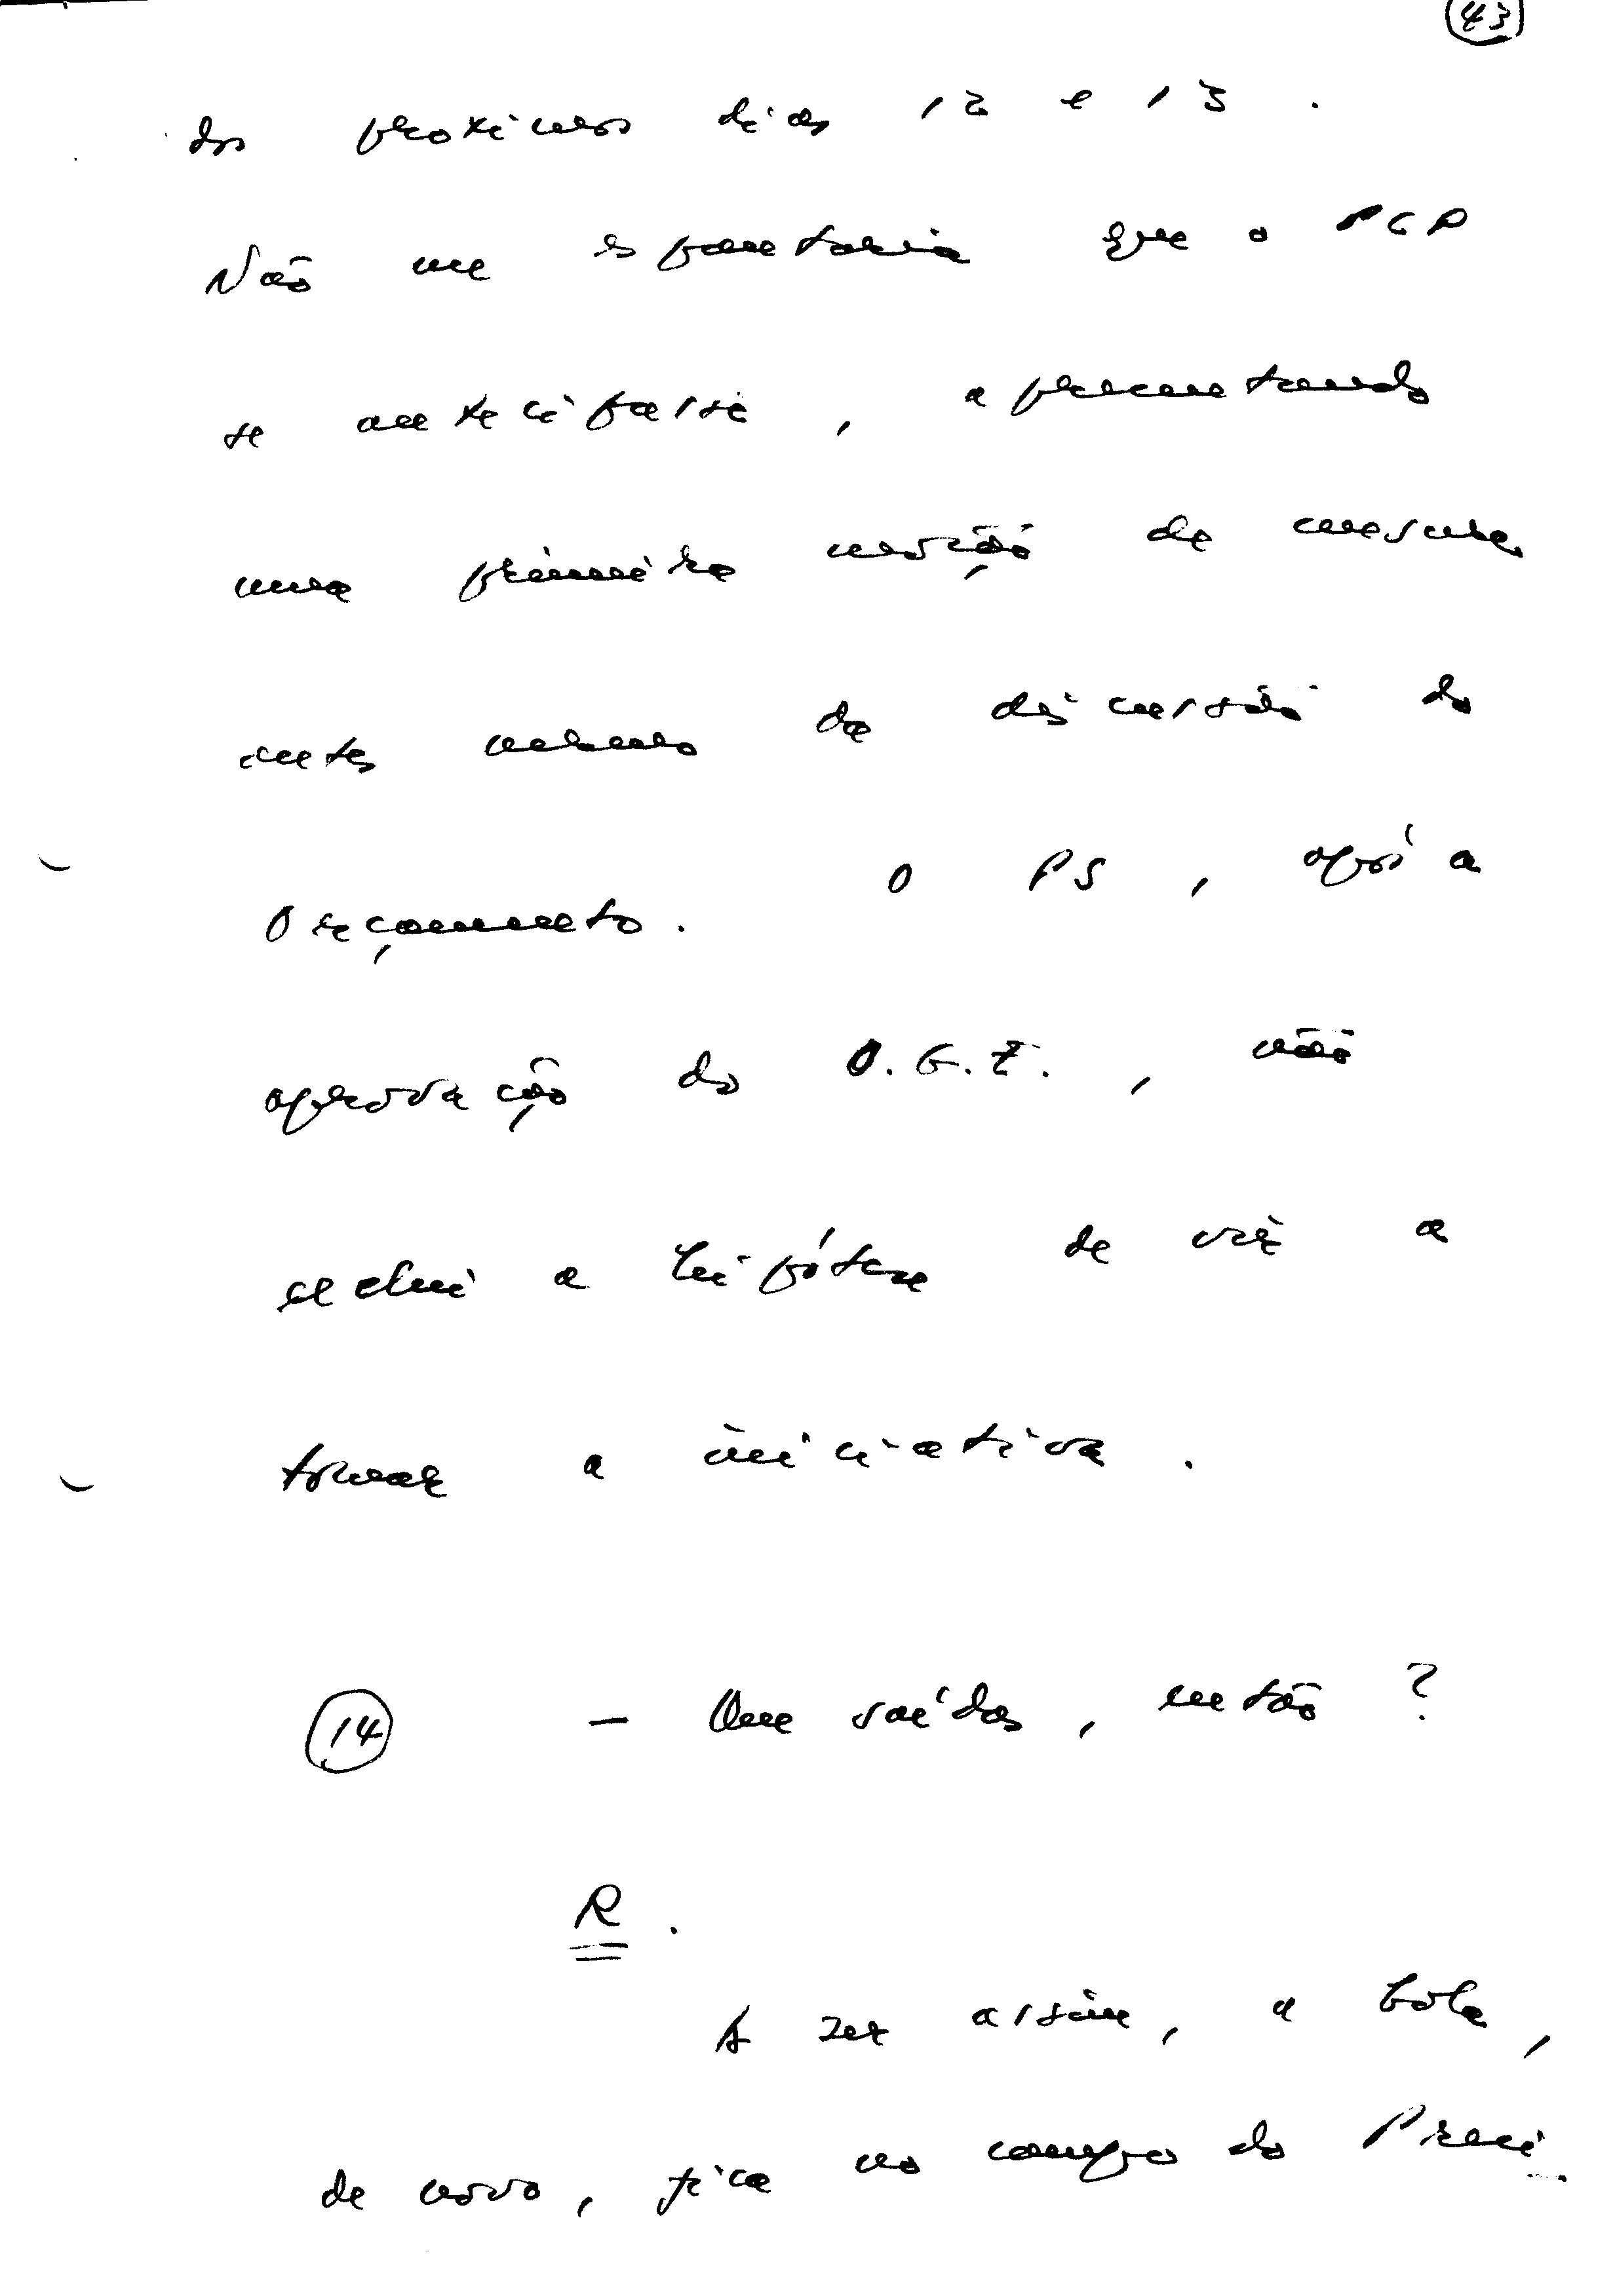 43
dos proximos dias 12 e 13.
Não me espantaria que o PCP
se antecipasse, apresentando
uma primeira moção de censura,
antes mesmo da discussão do
Orçamento. O PS, após a
aprovação do O.G.E., não
exclui a hipótese de vir a
tomar a iniciativa.
14 — Que saídas, então?
R.
A ser assim, a bola,
de novo, fica no campo do Presi-